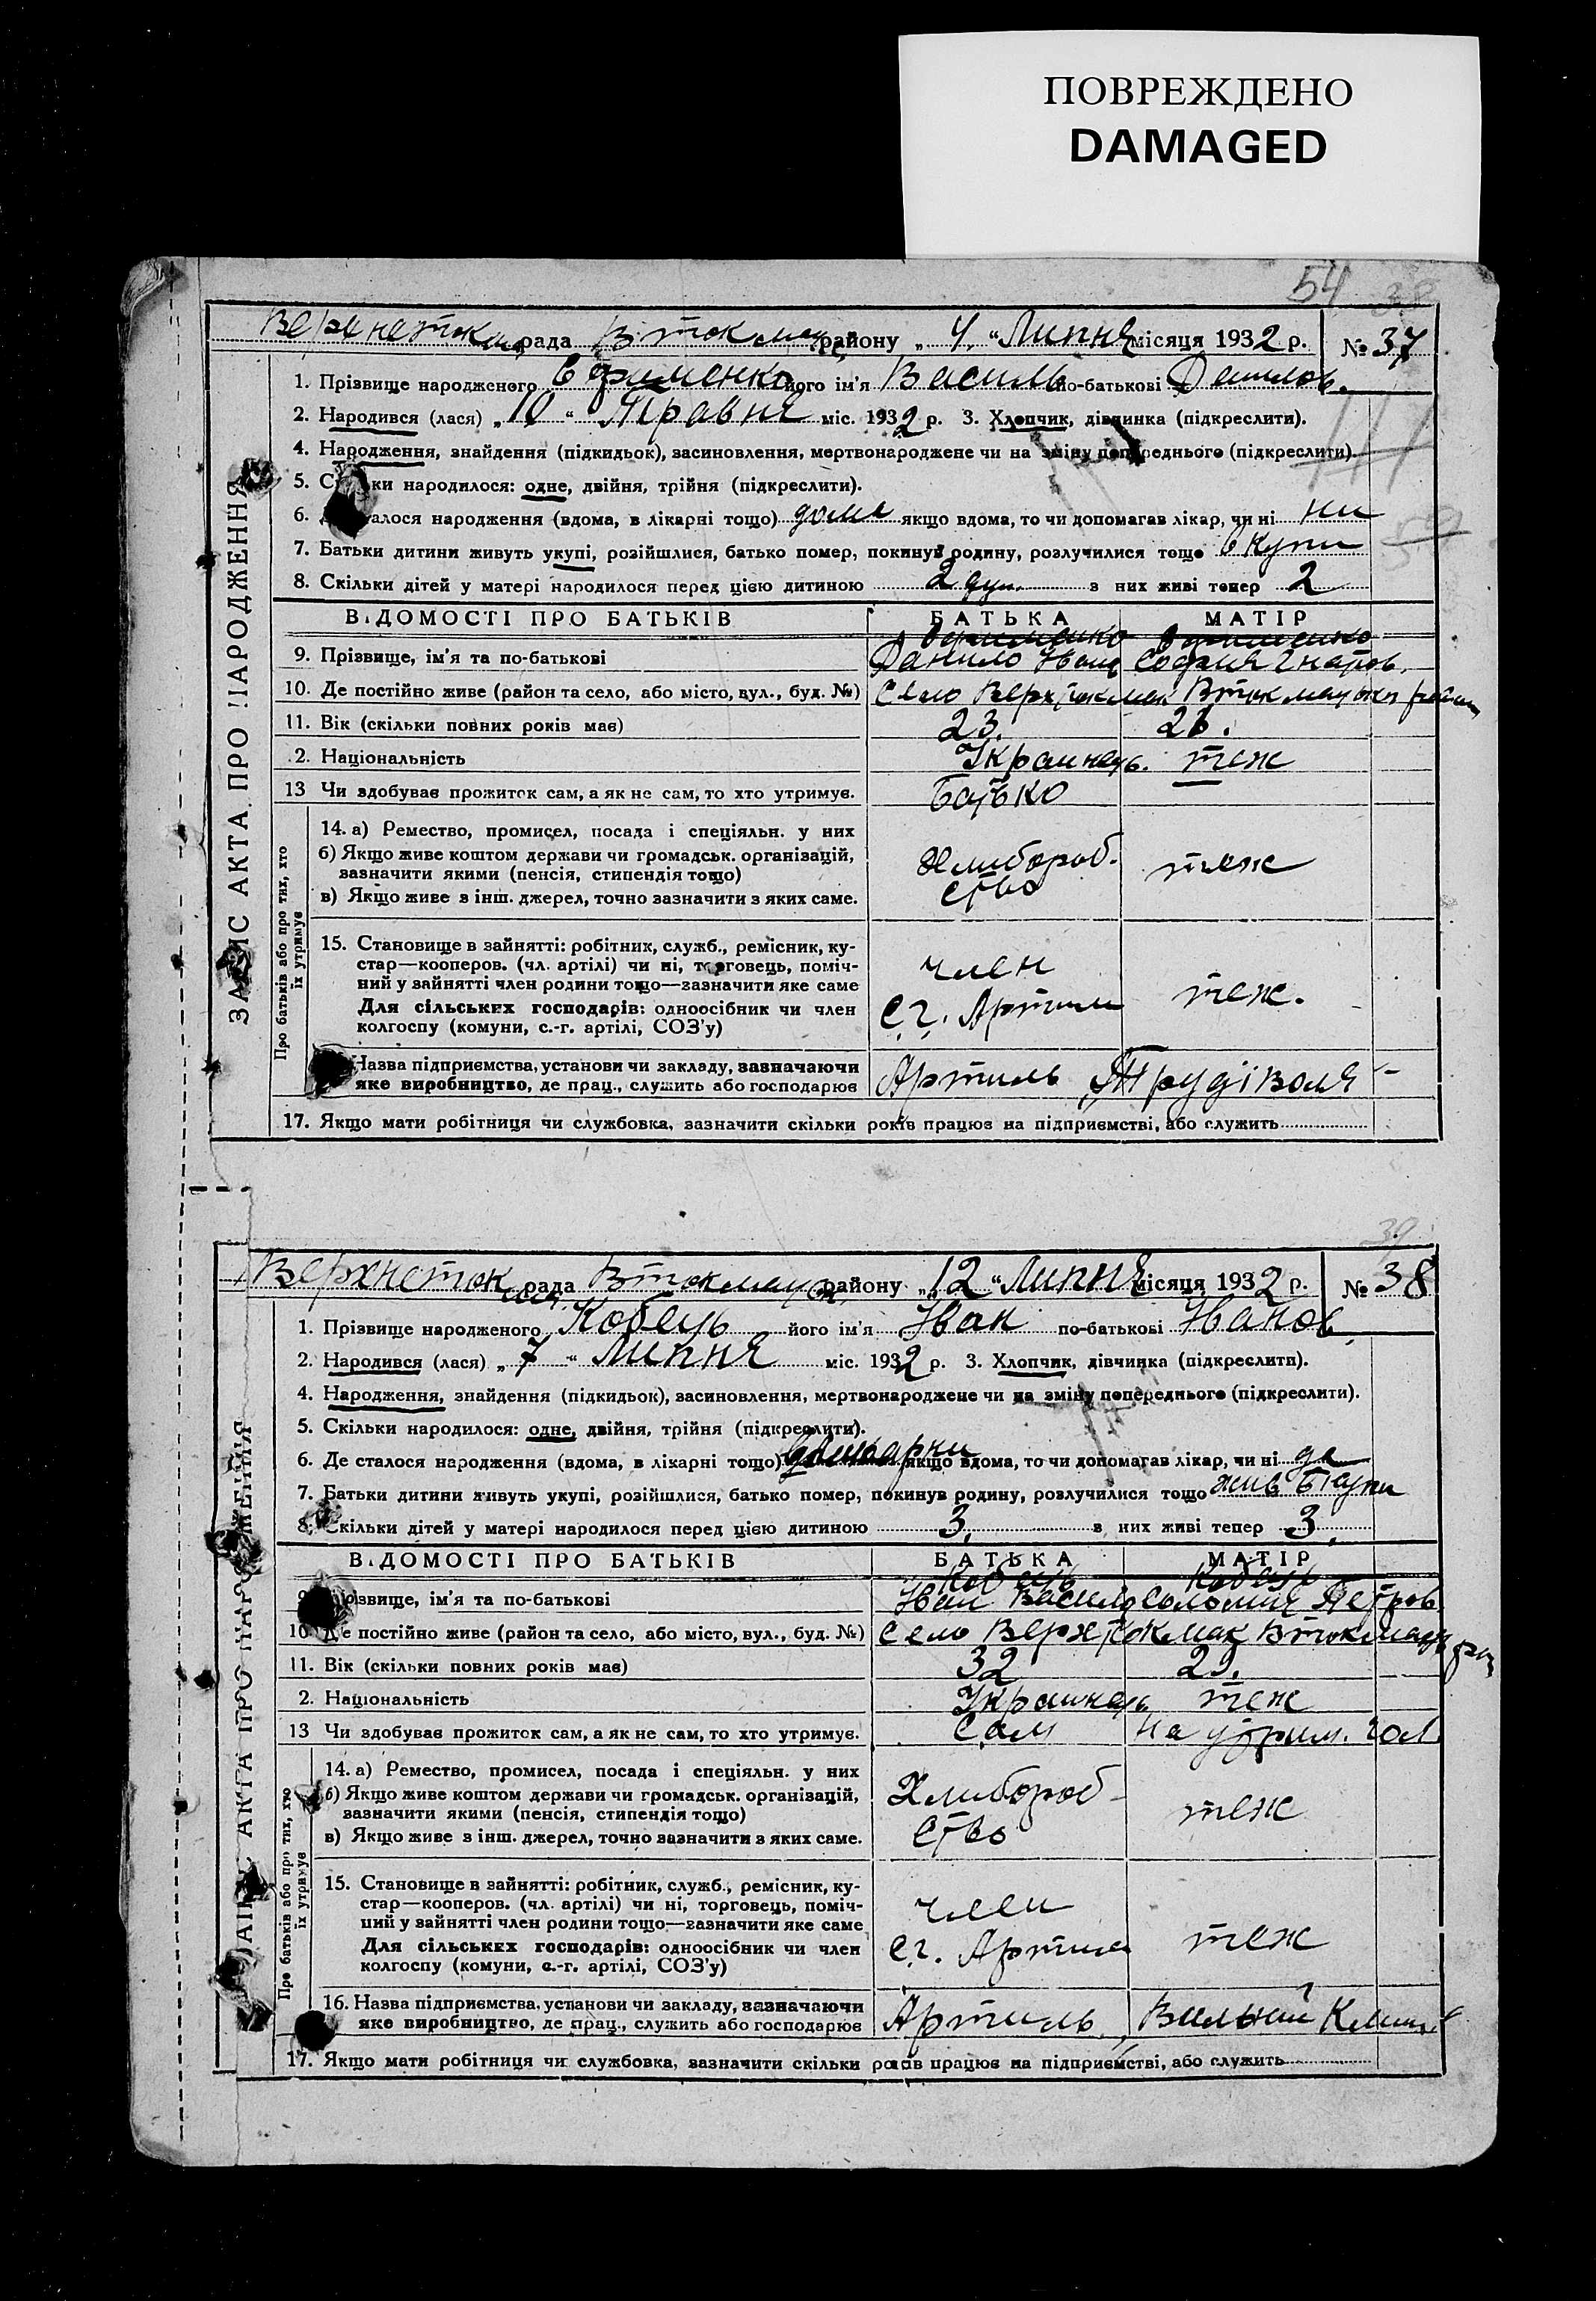 ПОВРЕЖДЕНО
DAMAGED
54 38
Верхнеток рада Втокмац району „ 4 “ Липня місяця 1932 р. № 37
1. Прізвище народженого Єфименко його ім'я Василь по-батькові Данилов.
2. Народився (лася) „ 10 “ Травня міс. 1932 р. 3. Хлопчик, дівчинка (підкреслити).
4. Народження, знайдення (підкидьок), засиновлення, мертвонароджене чи на зміну попереднього (підкреслити).
5. Скільки народилося: одне, двійня, трійня (підкреслити).
6. Де сталося народження (вдома, в лікарні тощо) дома якщо вдома, то чи допомагав лікар, чи ні ни
7. Батьки дитини живуть укупі, розійшлися, батько помер, покинув родину, розлучилися тощо вкупи
8. Скільки дітей у матері народилося перед цією дитиною 2 душ. з них живі тепер 2
ВІДОМОСТІ ПРО БАТЬКІВ БАТЬКА МАТІР
Єфименко Єфименко
9. Прізвище, ім'я та по-батькові Данило Иван София Гнатов.
10. Де постійно живе (район та село, або місто, вул., буд. №) Село Верх Токмак Втокмацького район
11. Вік (скільки повних років має) 23. 23.
2. Національність Украинець. теж
13 Чи здобуває прожиток сам, а як не сам, то хто утримує. Батько
ЗАПИС АКТА ПРО НАРОДЖЕННЯ
Про батьків або про тих, хто їх утримує
14. а) Ремество, промисел, посада і спеціяльн. у них
б) Якщо живе коштом держави чи громадськ. організацій,
зазначити якими (пенсія, стипендія тощо) Хлибороб. теж
в) Якщо живе з інш. джерел, точно зазначити з яких саме. ство
15. Становище в зайнятті: робітник, служб., ремісник, ку-
стар—кооперов. (чл. артілі) чи ні, торговець, поміч- член
ний у зайнятті член родини тощо—зазначити яке саме теж.
Для сільських господарів: одноосібник чи член с.г. Артили
колгоспу (комуни, с.-г. артілі, СОЗ'у)
Назва підприємства, установи чи закладу, зазначаючи
яке виробництво, де прац., служить або господарює Артиль „Труд і Воля
17. Якщо мати робітниця чи службовка, зазначити скільки років працює на підприємстві, або служить
39
Верхнеток рада Втокмацьк району „ 12 “ Липня місяця 1932 р. № 38
1. Прізвище народженого Кобець його ім'я Иван по-батькові Иванов
2. Народився (лася) „ 7 “ Липня міс. 1932 р. 3. Хлопчик, дівчинка (підкреслити).
4. Народження, знайдення (підкидьок), засиновлення, мертвонароджене чи на зміну попереднього (підкреслити).
5. Скільки народилося: одне, двійня, трійня (підкреслити).
6. Де сталося народження (вдома, в лікарні тощо) якщо вдома, то чи допомагав лікар, чи ні да
7. Батьки дитини живуть укупі, розійшлися, батько помер, покинув родину, розлучилися тощо жив вкупи
8. Скільки дітей у матері народилося перед цією дитиною 3. з них живі тепер 3.
ВІДОМОСТІ ПРО БАТЬКІВ БАТЬКА МАТІР
Кобець Кобець
9. Прізвище, ім'я та по-батькові Иван Васил Соломия Петров.
10. Де постійно живе (район та село, або місто, вул., буд. №) Село Верх Токмак Втокмацьк рай
11. Вік (скільки повних років має) 32 29.
2. Національність Украинець теж
13 Чи здобуває прожиток сам, а як не сам, то хто утримує. Сам на утрим. чол.
ЗАПИС АКТА ПРО НАРОДЖЕННЯ
Про батьків або про тих, хто їх утримує
14. а) Ремество, промисел, посада і спеціяльн. у них
б) Якщо живе коштом держави чи громадськ. організацій, Хлибороб-
зазначити якими (пенсія, стипендія тощо) теж
в) Якщо живе з інш. джерел, точно зазначити з яких саме. ство
15. Становище в зайнятті: робітник, служб., ремісник, ку-
стар—кооперов. (чл. артілі) чи ні, торговець, поміч- член
ний у зайнятті член родини тощо—зазначити яке саме
Для сільських господарів: одноосібник чи член с.г. Артили теж
колгоспу (комуни, с.-г. артілі, СОЗ'у)
16. Назва підприємства, установи чи закладу, зазначаючи
яке виробництво, де прац., служить або господарює Артиль „Вильний
17. Якщо мати робітниця чи службовка, зазначити скільки років працює на підприємстві, або служить